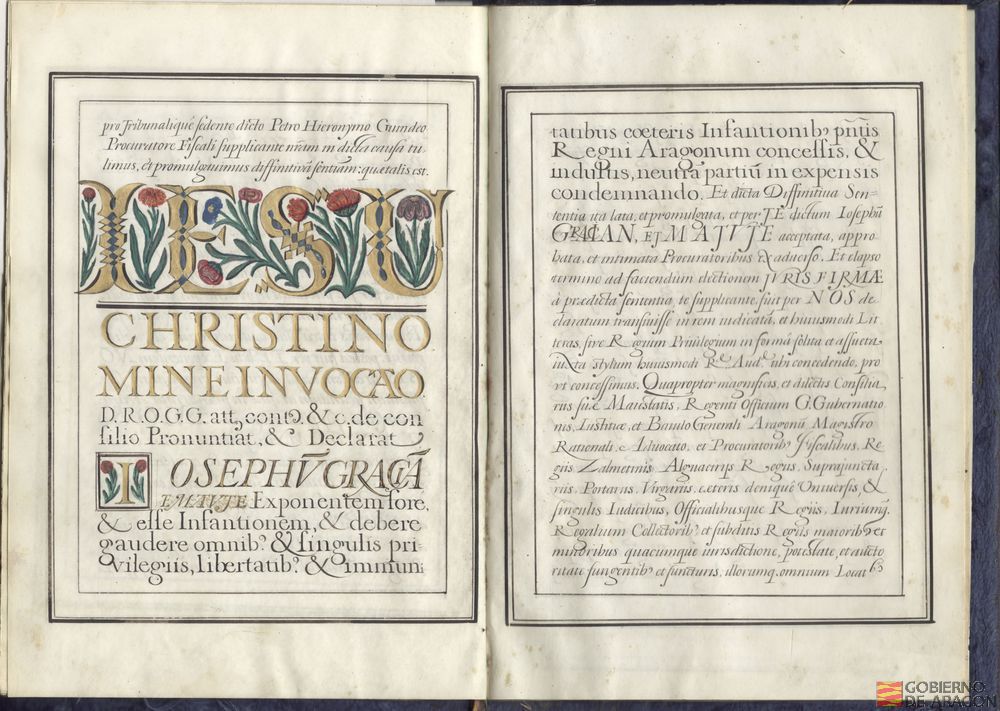 pro Tribunalique sedente dicto Petro Hieronymo Guindeo
Procuratore Fiscali supplicante nr̃am in dicta causa tu-
limus, et promulgauimus diffinitivã sentiam: quæ talis est.
IESU
CHRISTI NO
MINE INVOCAO
D. R. O. G. G. att, contẽ. & c. de con
silio Pronuntiat, & Declarat
IOSEPHṼ GRACIÃ
E MAUJE Exponentem fore,
& esse Infantionem, & debere
gaudere omnibꝰ & singulis pri-
vilegiis, libertatibꝰ & immuni
tatibus cœteris Infantionibꝰ pñtis
Regni Aragonum concessis, &
indultis, neutrã partiũ in expensis
condemnando. Et dicta Diffinitiua Sen=
tentia ita lata, et promulgata, et per TE dictum Iosephũ
GRACIAN, ET MATUTE acceptata, appro-
bata, et intimata Procuratoribus ex aduerso. Et elapso
termino ad faciendum electionem IURIS FIRMÆ
à prædicta sententia, te supplicante, fuit per NOS de-
claratum transiuisse in rem iudicatã, et huiusmodi Lit
teras, siue Regium Priuilegium in forma solita et assueta
iuxta stylum huiusmodi Rꝰ Audꝰ. tibi concedendo, pro
vt concessimus. Quapropter magnificis, et dilectis Consilia
riis suæ Maiestatis, Regenti Officium G. Gubernatio
nis, Iustitiæ, et Baiulo Generali Aragonũ Magistro
Rationali. Aduocato, et Procuratoribꝰ Fiscalibus, Re
giis Zalmetinis Alguaciriis Regiis, Suprajuncta
riis, Portariis, Virgariis, cæteris denique Vniuersis, &
singulis Iudicibus, Officialibusque Regiis, Iuriumq.
Regalium Collectoribꝰ et subditis Regiis maioribꝰ et
minoribus quacumque iurisdictione, potestate, et aucto
ritate fungentibꝰ et functuris, illorumq. omnium Locat
63
GOBIERNO
DE ARAGON